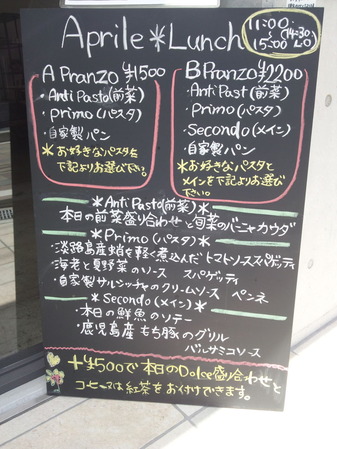 Aprile*Lunch
11:00
~(14:30
15:00 LO)
A Pranzo ¥1500
・Anti Pasto(前菜)
・Primo(パスタ)
・自家製パン
*お好きなパスタを
下記よりお選び下さい。
B Pranzo ¥2200
・Anti Past(前菜)
・Primo(パスタ)
・Secondo(メイン)
・自家製パン
*お好きなパスタと
メインを下記よりお選び
下さい。
*Anti Pasto(前菜)*
本日の前菜盛り合わせと旬菜のバーニャカウダ
*Primo(パスタ)*
・淡路島産蛸を軽く煮込んだトマトソーススパゲッティ
・海老と夏野菜のソース スパゲッティ
・自家製サルシッチャのクリームソース ペンネ
*Secondo(メイン)*
・本日の鮮魚のソテー
・鹿児島産もち豚のグリル
バルサミコソース
+¥500で本日のDolce盛り合わせと
コーヒー又は紅茶をお付けできます。